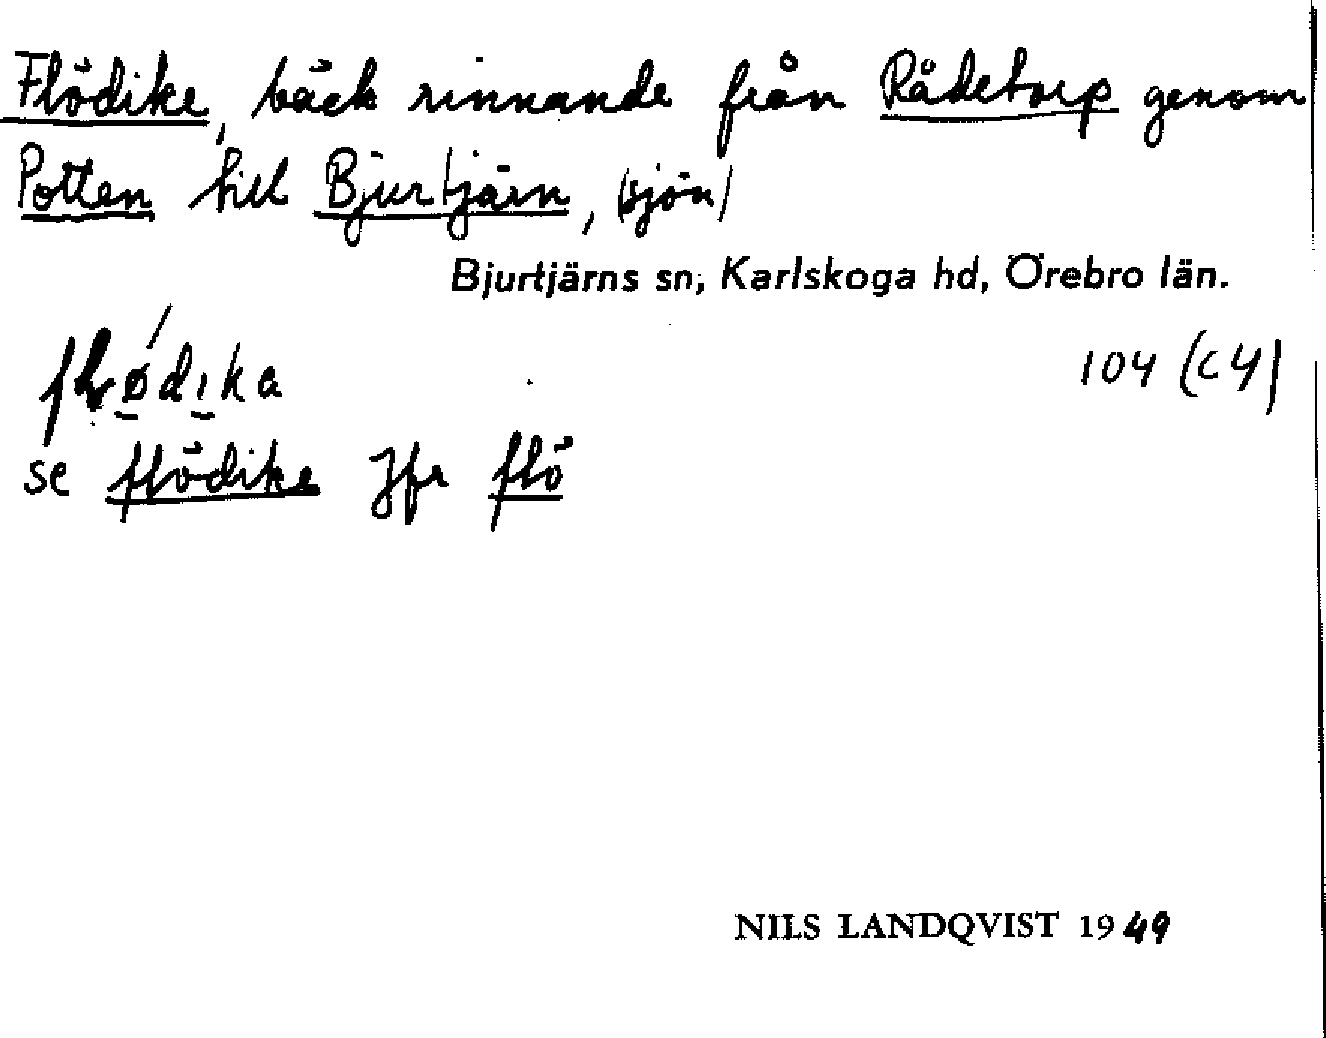 Flödike, bäck rinnande från Rådetorp genom
Potten till Bjurtjärn, (sjön)
Bjurtjärns sn, Karlskoga hd, Örebro län.
104 (c4)
se flödike Jfr flö
NILS LANDQVIST 1949